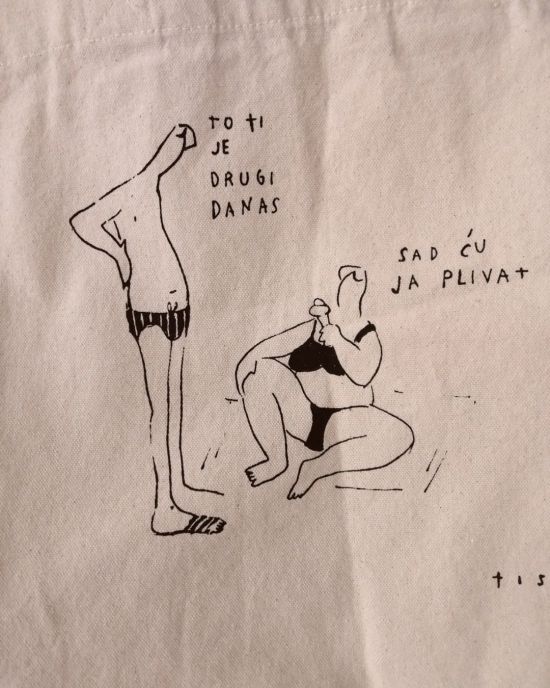 TO TI
JE
DRUGI
DANAS
SAD ĆU
JA PLIVAT
TIS